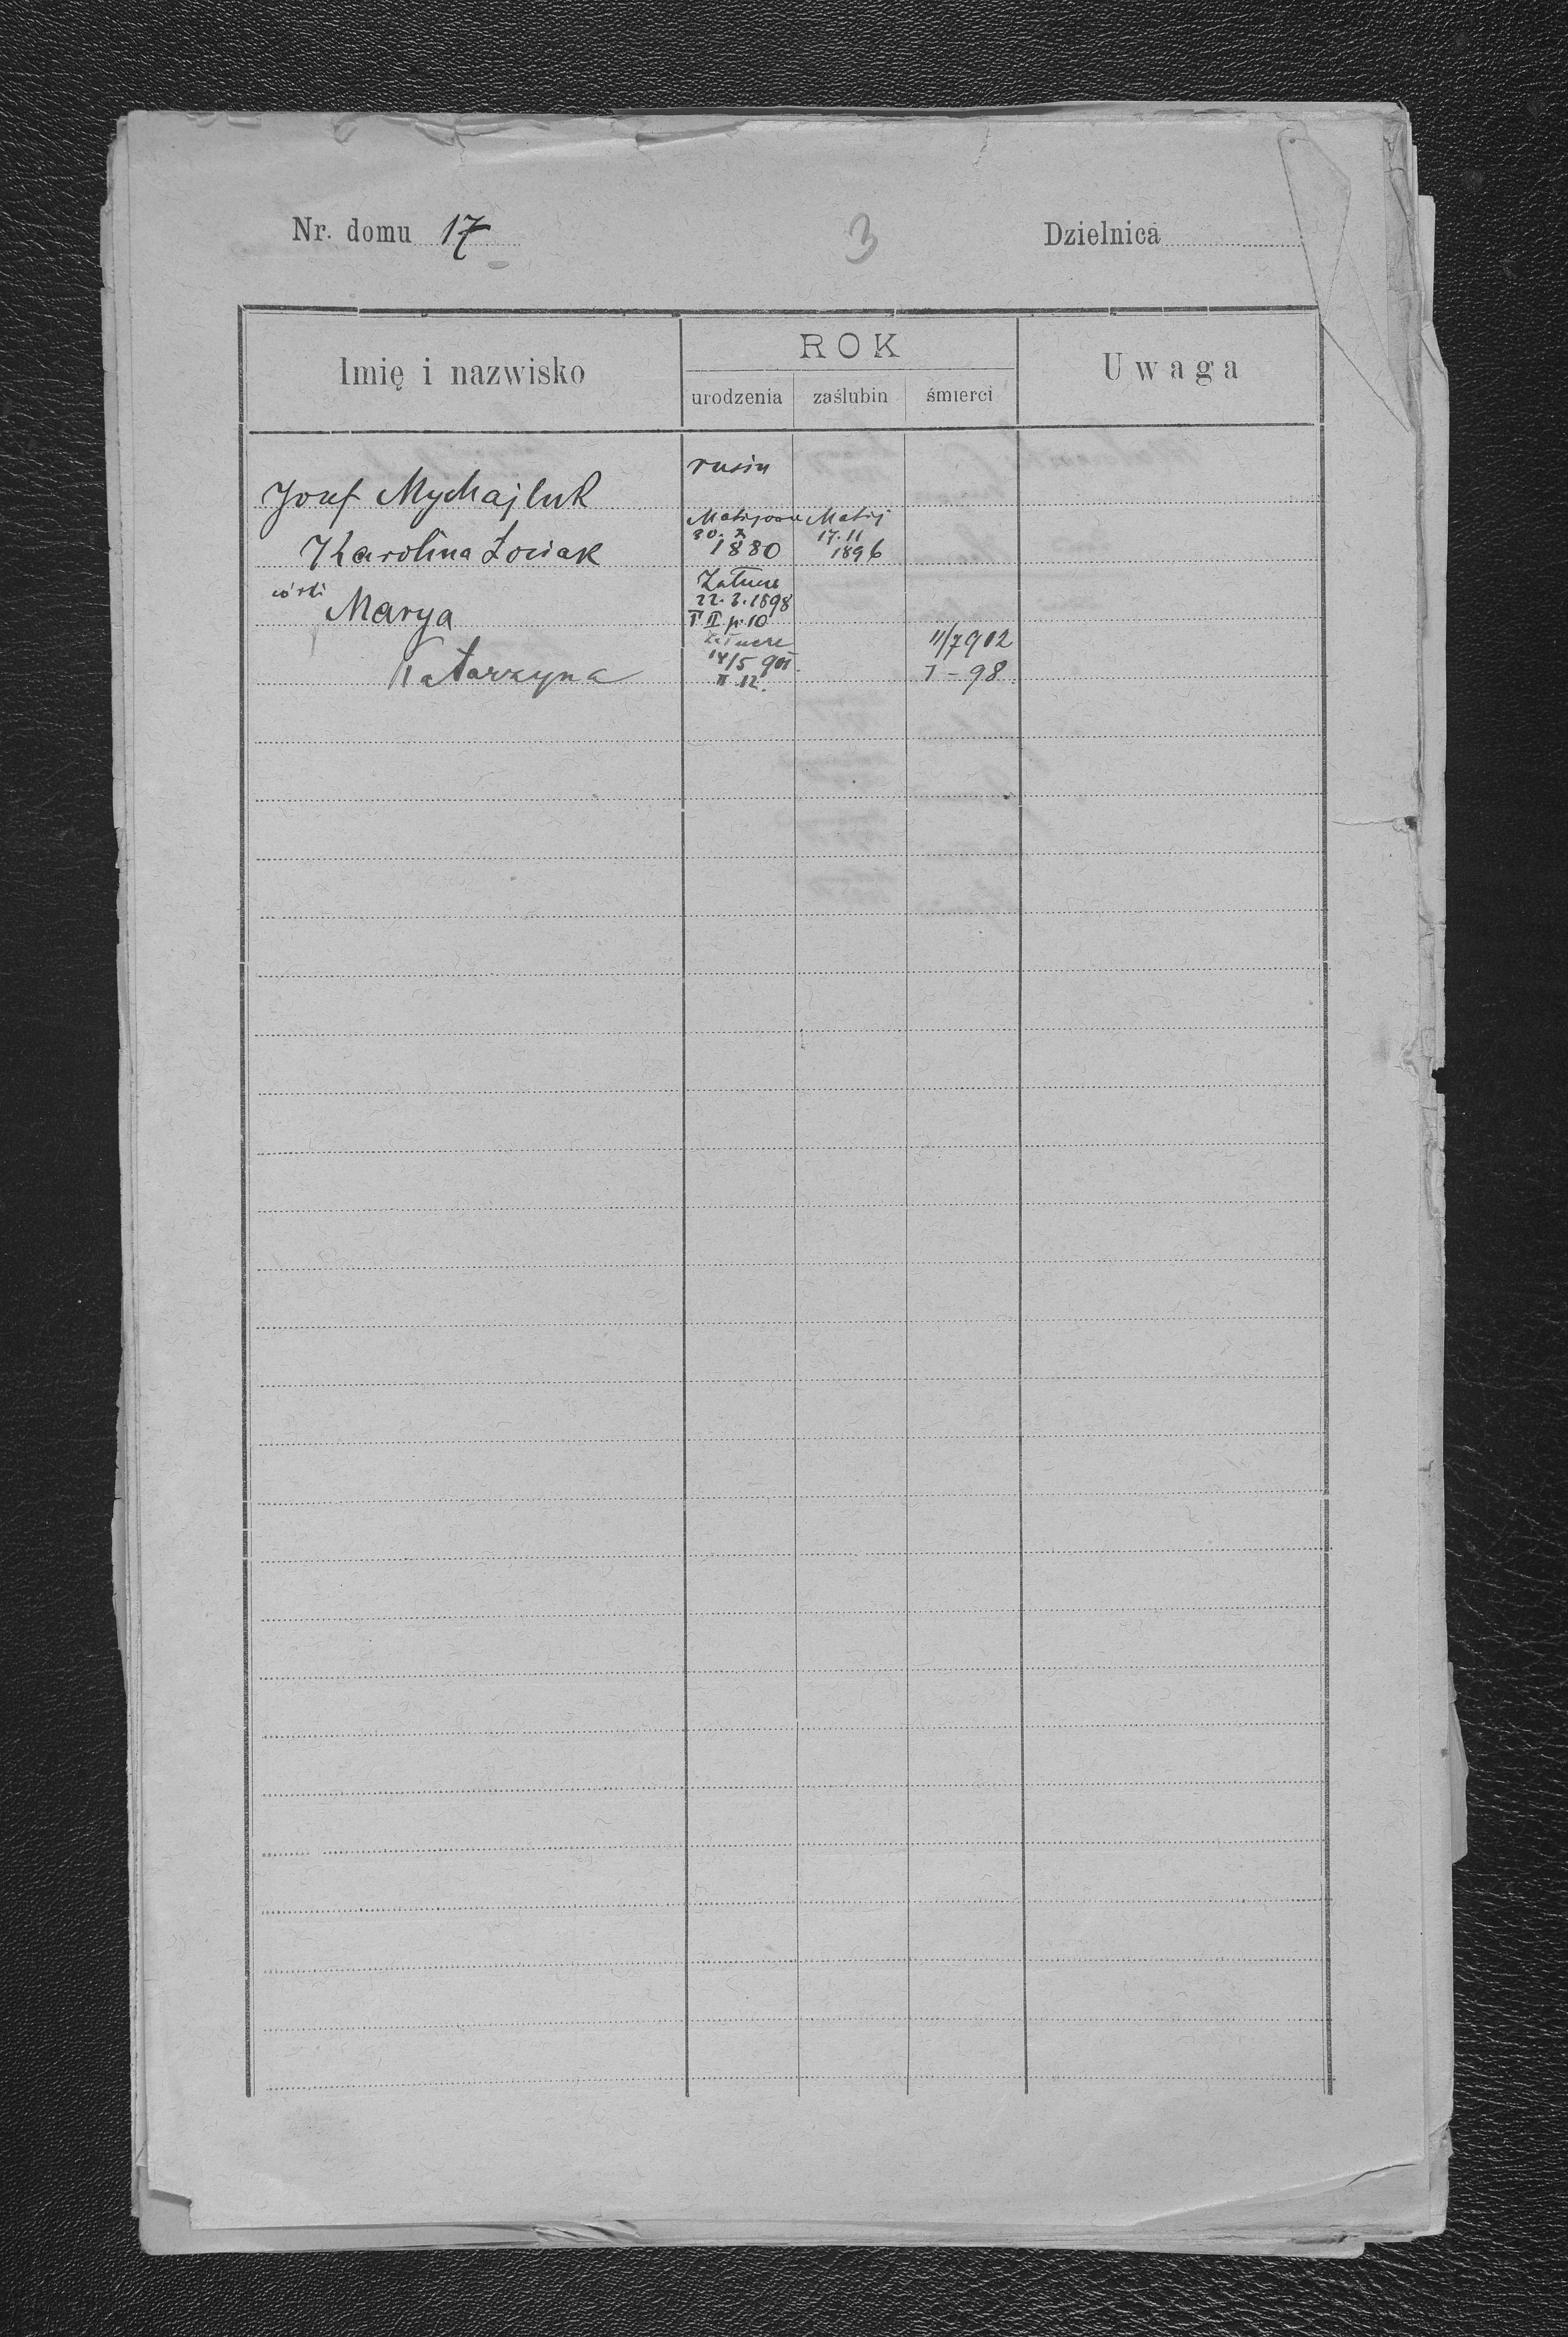 Nr. domu 17
3
Dzielnica
Imię i nazwisko
ROK
Uwaga
urodzenia zaślubin śmierci
rusin
Jozef Mychajluk
Matij
17.11
1896
Karolina Łociak
1880
Marya
Załucze
22.3.1898
T II p. 10
Katarzyna
Załucze
14/5 901.
II 12.
11/7 902
I - 98